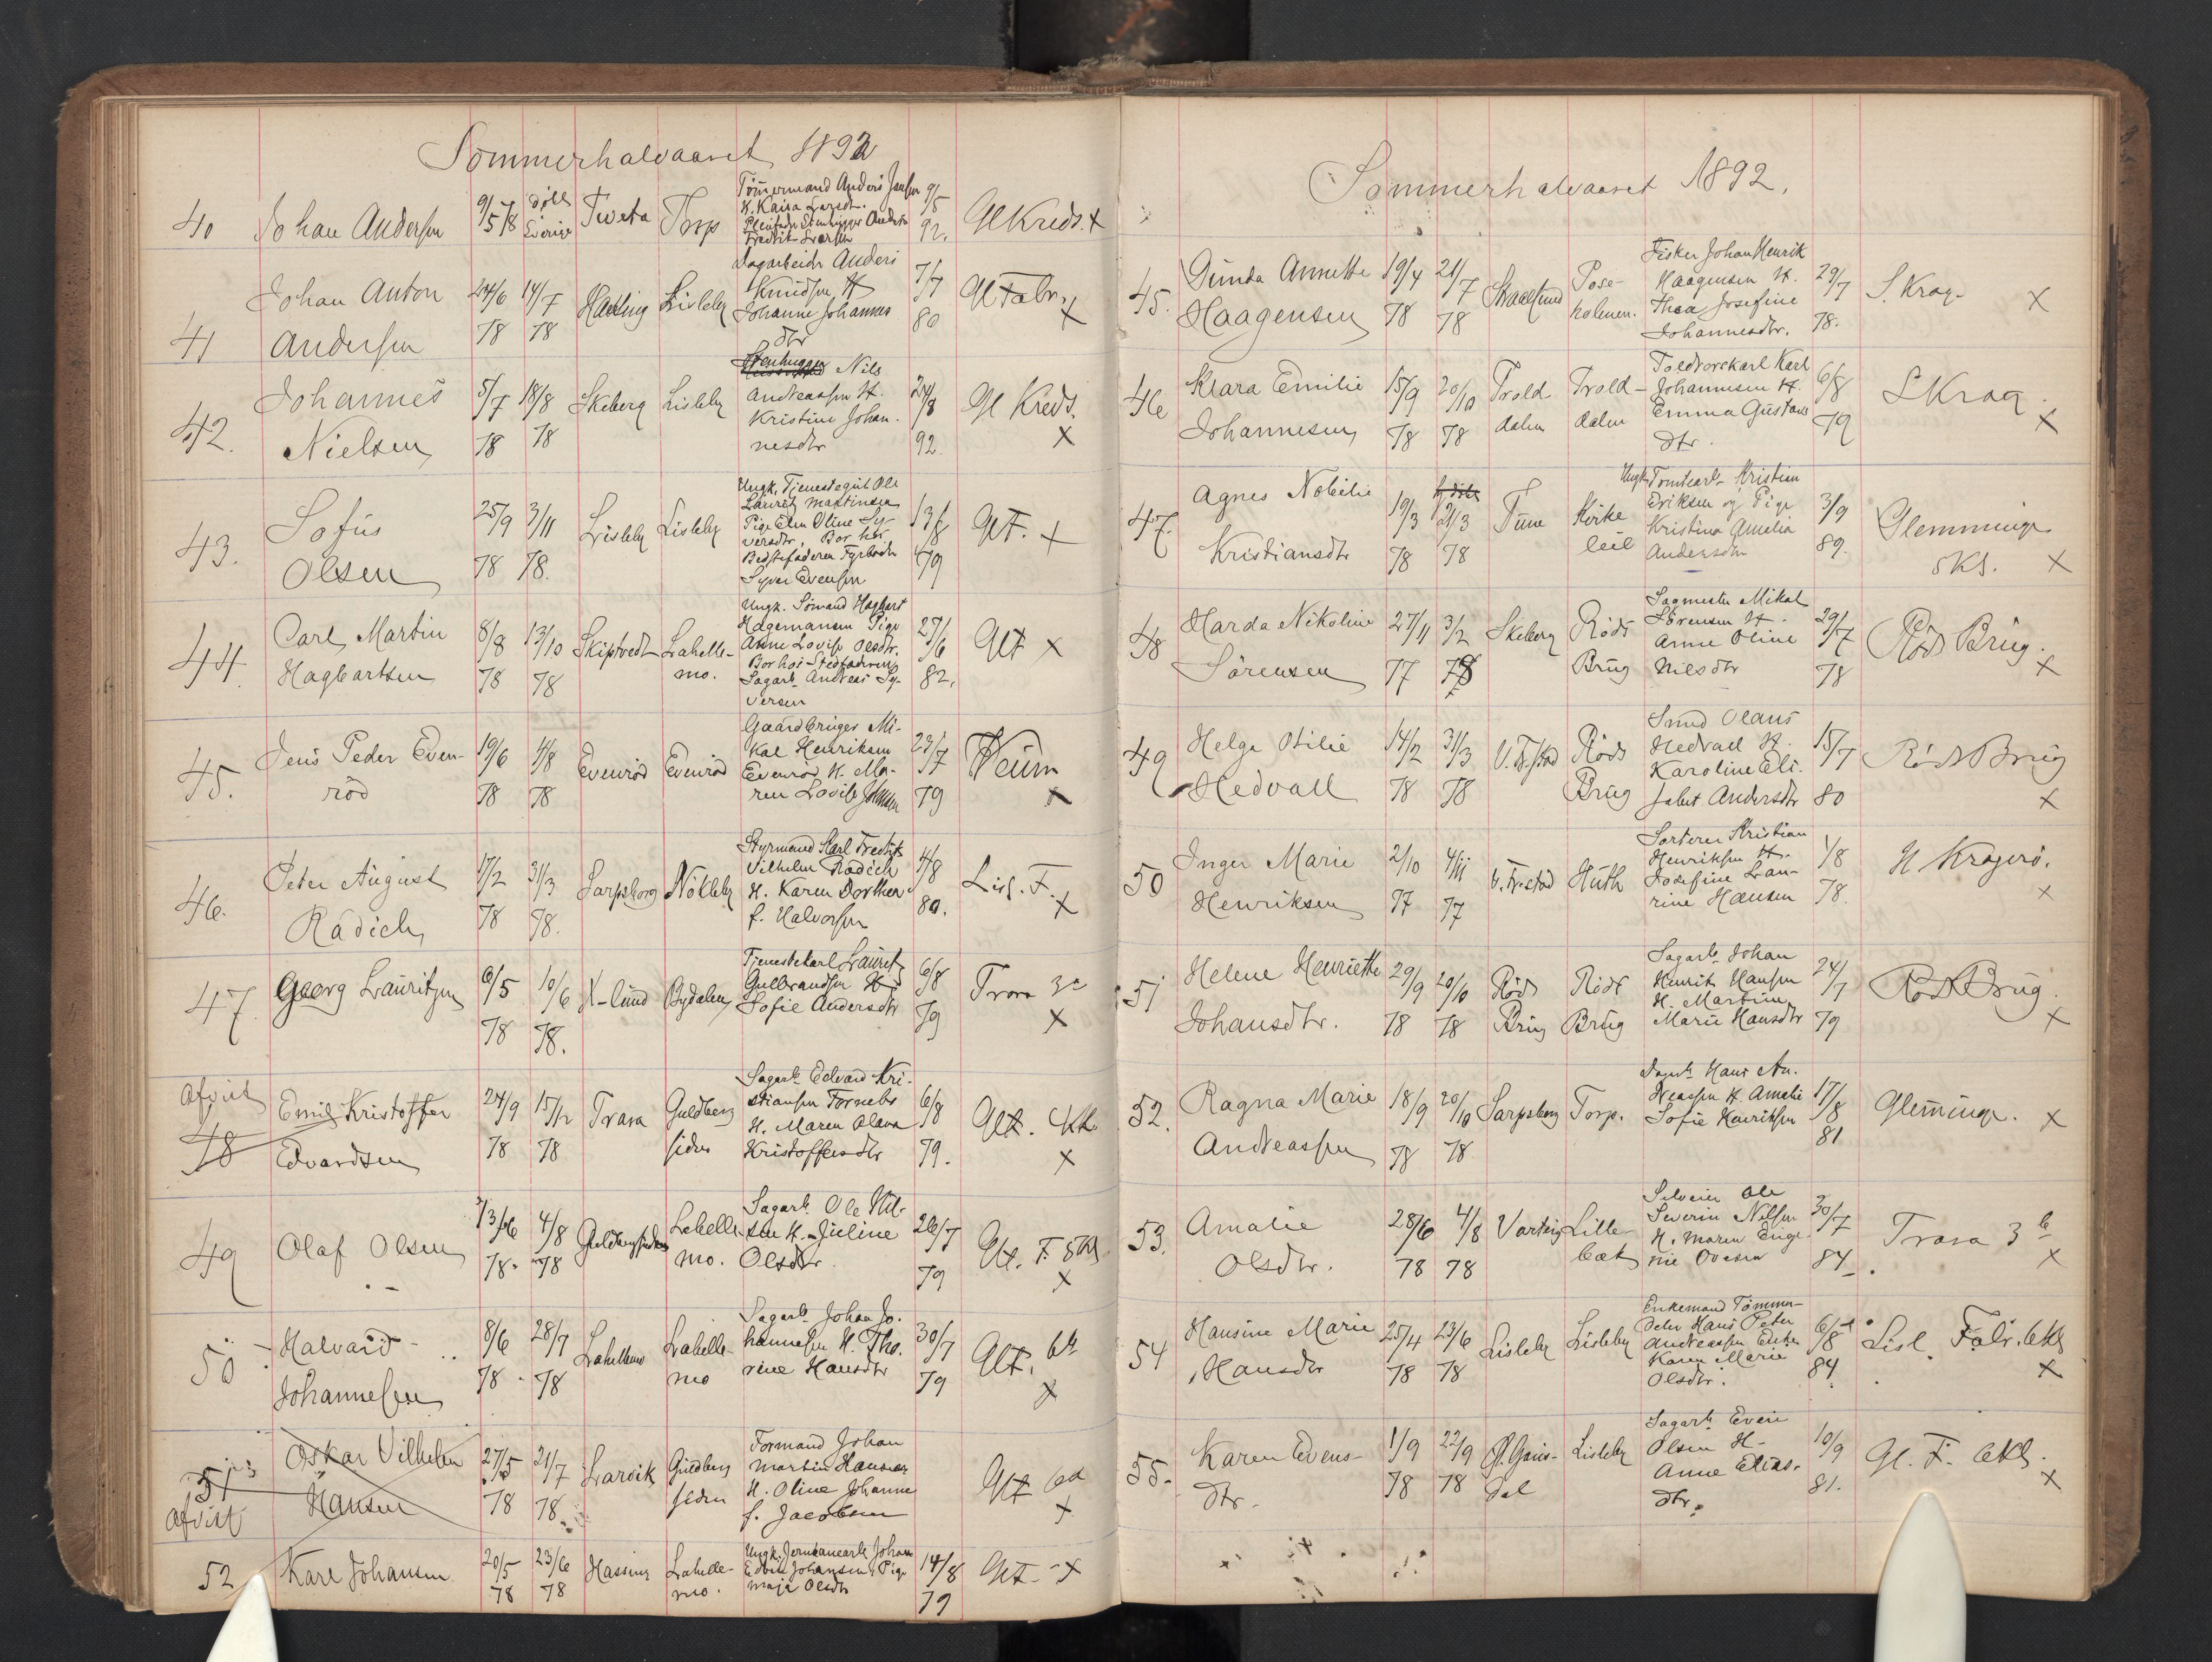 Sommerhalvaaret 1892
40 Johan Andersen 9/5 78 döbt Sverige Tveta Torp Tömmermand Anders Jansen H. Kaisa Larsdtr. 9/5 92. Gl Kreds. x
41 Johan Anton Andersen 24/6 78 14/7 78 Lisleby Dagarbeider Anders Knudsen H Johanne Johannesdtr 7/7 80 Gl Fabr. x
42. Johannes Nielsen 5/7 78 18/8 78 Skeberg Lisleby Stenhugger Nils Andreassen H. Kristine Johannesdtr 24/8 92. Gl Kreds. x
43. Sofus Olsen 25/9 78 3/11 78. Lisleby Lisleby Ungk. Tjenestegut Ole Lauritz Martinsen Pige Elen Oline Syversdtr, Bor hos Bedstefaderen Fyrböder Syver Evensen 13/8 79 Gl F. x
44. Carl Martin Hagbartsen 8/8 78 13/10 78 Skiptvedt Lahellemo. Ungk. Sömand Hagbart Hagemansen Pige Anne Lovise Olsdtr. Bor hos Stedfaderen Sagarb. Andreas Syversen 27/6 82. Gl F x
45. Jens Peder Evenröd 19/6 78 4/8 78 Evenröd Evenröd Gaardbruger Mikal Henriksen Evenröd H. Maren Lovise Johnsen 23/7 79 Veum x
46. Peter August Radich 17/2 78 31/3 78. Sarpsborg Nökleby Styrmand Karl Fredrik Vilhelm Radich H. Karen Dorthea f. Halvorsen 4/8 80. Lisl. F. x
47. Georg Lauritzen 6/5 78 10/6 78. X-lund Bydalen Tjenestekarl Lauritz Gulbrandsen H Sofie Andersdtr 6/8 79 Trara 3e x
Afvist 48 Emil Kristoffer Edvardsen 24/9 78 15/12 78 Trara Guldbergsiden Sagarb. Edvard Kristiansen Fornebo H. Maren Olava Kristoffersdtr 6/8 79. Gl F. 4kl. x
49 Olaf Olsen 13/6 78. 4/8 78 Guldbergsiden Lahellemo. Sagarb. Ole Nilsen H. Juline Olsdtr 26/7 79 Gl. F 5Kl x
50 Halvard Johannesen 8/6 78. 28/7 78 Lahellemo Lahellemo Sagarb. Johan Johannesen H. Thorine Hansdtr 30/7 79 Gl F. 6kl x
51 Afvist Oskar Vilhelm Hansen 27/5 78 21/7 78. Larvik Guldbergsiden Formand Johan Martin Hansen H. Oline Johanne f. Jacobsen Gl F 6kl x
52 Karl Johansen 20/5 78 23/6 78 Lahellemo. Ungk. Jernbanearb. Johan Edvin Johansen, Pige Maja Olsdtr 14/8 79 Gl F x
Sommerhalvaaret 1892.
45. Gunda Annette Haagensen 19/4 78 21/7 78 Kraakstad Posekolmen. Fisker Johan Henrik Haagensen H. Thea Josefine Johannesdtr. 29/7 78. S. Krog. x
46 Klara Emilie Johannesen 15/9 78 20/10 78 Trolddalen Trolddalen Toldrorskarl Karl Johannesen H. Emma Gustavsdtr. 6/8 79 S Krog. x
47. Agnes Nobelie Kristiansdtr 19/3 78 21/3 78 Tune Kirkeleil Ungk Tomtearb. Kristian Eriksen og Pige Kristina Amelia Andersdtr 3/9 89. Glemminge skl. x
48 Harda Nikoline Sörensen 27/11 77 3/2 78 Skeberg Röds Brug Sagmester Mikal Sörensen H. Anne Oline Nilsdtr 29/7 78 Röds Brug. x
49 Helga Otilie Hedvall 14/2 78 31/3 78 V. Fr.stad Röds Brug Smed Olaus Hedvall H. Karoline Elisabet Andersdtr 15/7 80 Röds Brug x
50 Inger Marie Henriksen 2/10 77 4/11 77 V. Fr.stad Huth Sorterer Kristian Henriksen H. Josefine Laurine Hansen 1/8 78. N Kragerö. x
51 Helene Henriette Johansdtr. 29/9 78 20/10 78 Röds Brug Röds Brug Sagarb. Johan Henrik Hansen H. Martine Marie Hansdtr 24/7 79 Röds Brug. x
52. Ragna Marie Andreassen 18/9 78 20/10 78 Sarpsborg Torp. Dagarb. Hans Andreassen H. Amalie Sofie Henriksen 17/8 81 Glemminge. x
53. Amalie Olsdtr. 28/6 78 4/8 78 Varteig Lillebæk Selveier Ole Severin Nilsen H. Maren Eugenie Ovesen 30/7 84 Trara 3de x
54 Hansine Marie Hansdtr 25/4 78 23/6 78 Lisleby Lisleby Enkemand Tömmerdeler Hans Peter Andreassen Enken Karen Marie Olsdtr. 6/8 84. Lisl. Fabr. 6Kl x
55. Karen Evensdtr. 1/9 78 22/9 78 Lisleby Sagarb. Even Olsen H. Anne Eliasdtr. 10/9 81. Gl. F. 6Kl. x